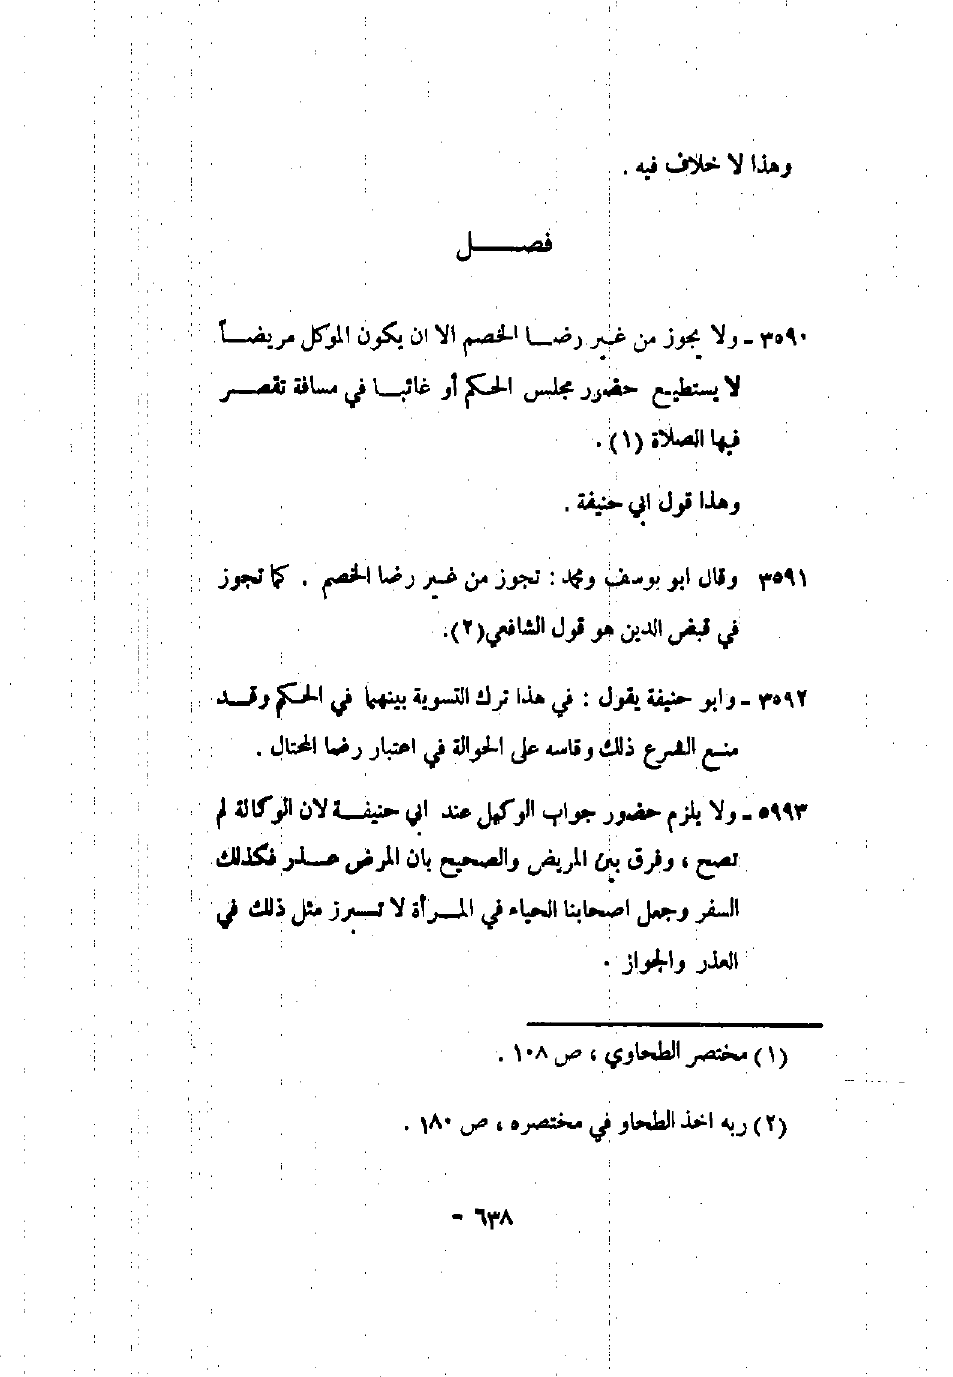 وهذا لا خلاف فيه .
فصــــــل
٣٥٩٠ ـ ولا يجوز من غير رضا الخصم الا ان يكون الموكل مريضاً
لا يستطيع حضور مجلس الحكم أو غائبا في مسافة تقصر
فيها الصلاة (١) .
وهذا قول ابي حنيفة .
٣٥٩١ وقال ابو يوسف ومحمد : تجوز من غير رضا الخصم . كما تجوز
في قبض الدين هو قول الشافعي(٢).
٣٥٩٢ ـ وابو حنيفة يقول : في هذا ترك التسوية بينهما في الحكم وقد
منع الشرع ذلك وقاسه على الحوالة في اعتبار رضا المحتال .
٥٩٩٣ ـ ولا يلزم حضور جواب الوكيل عند ابي حنيفة لان الوكالة لم
تصح ، وفرق بين المريض والصحيح بان المرض عذر فكذلك
السفر وجعل اصحابنا الحياء في المرأة لا تبرز مثل ذلك في
العذر والجواز .
(١) مختصر الطحاوي ، ص ١٠٨ .
(٢) ربه اخذ الطحاو في مختصره ، ص ١٨٠ .
٦٣٨ -